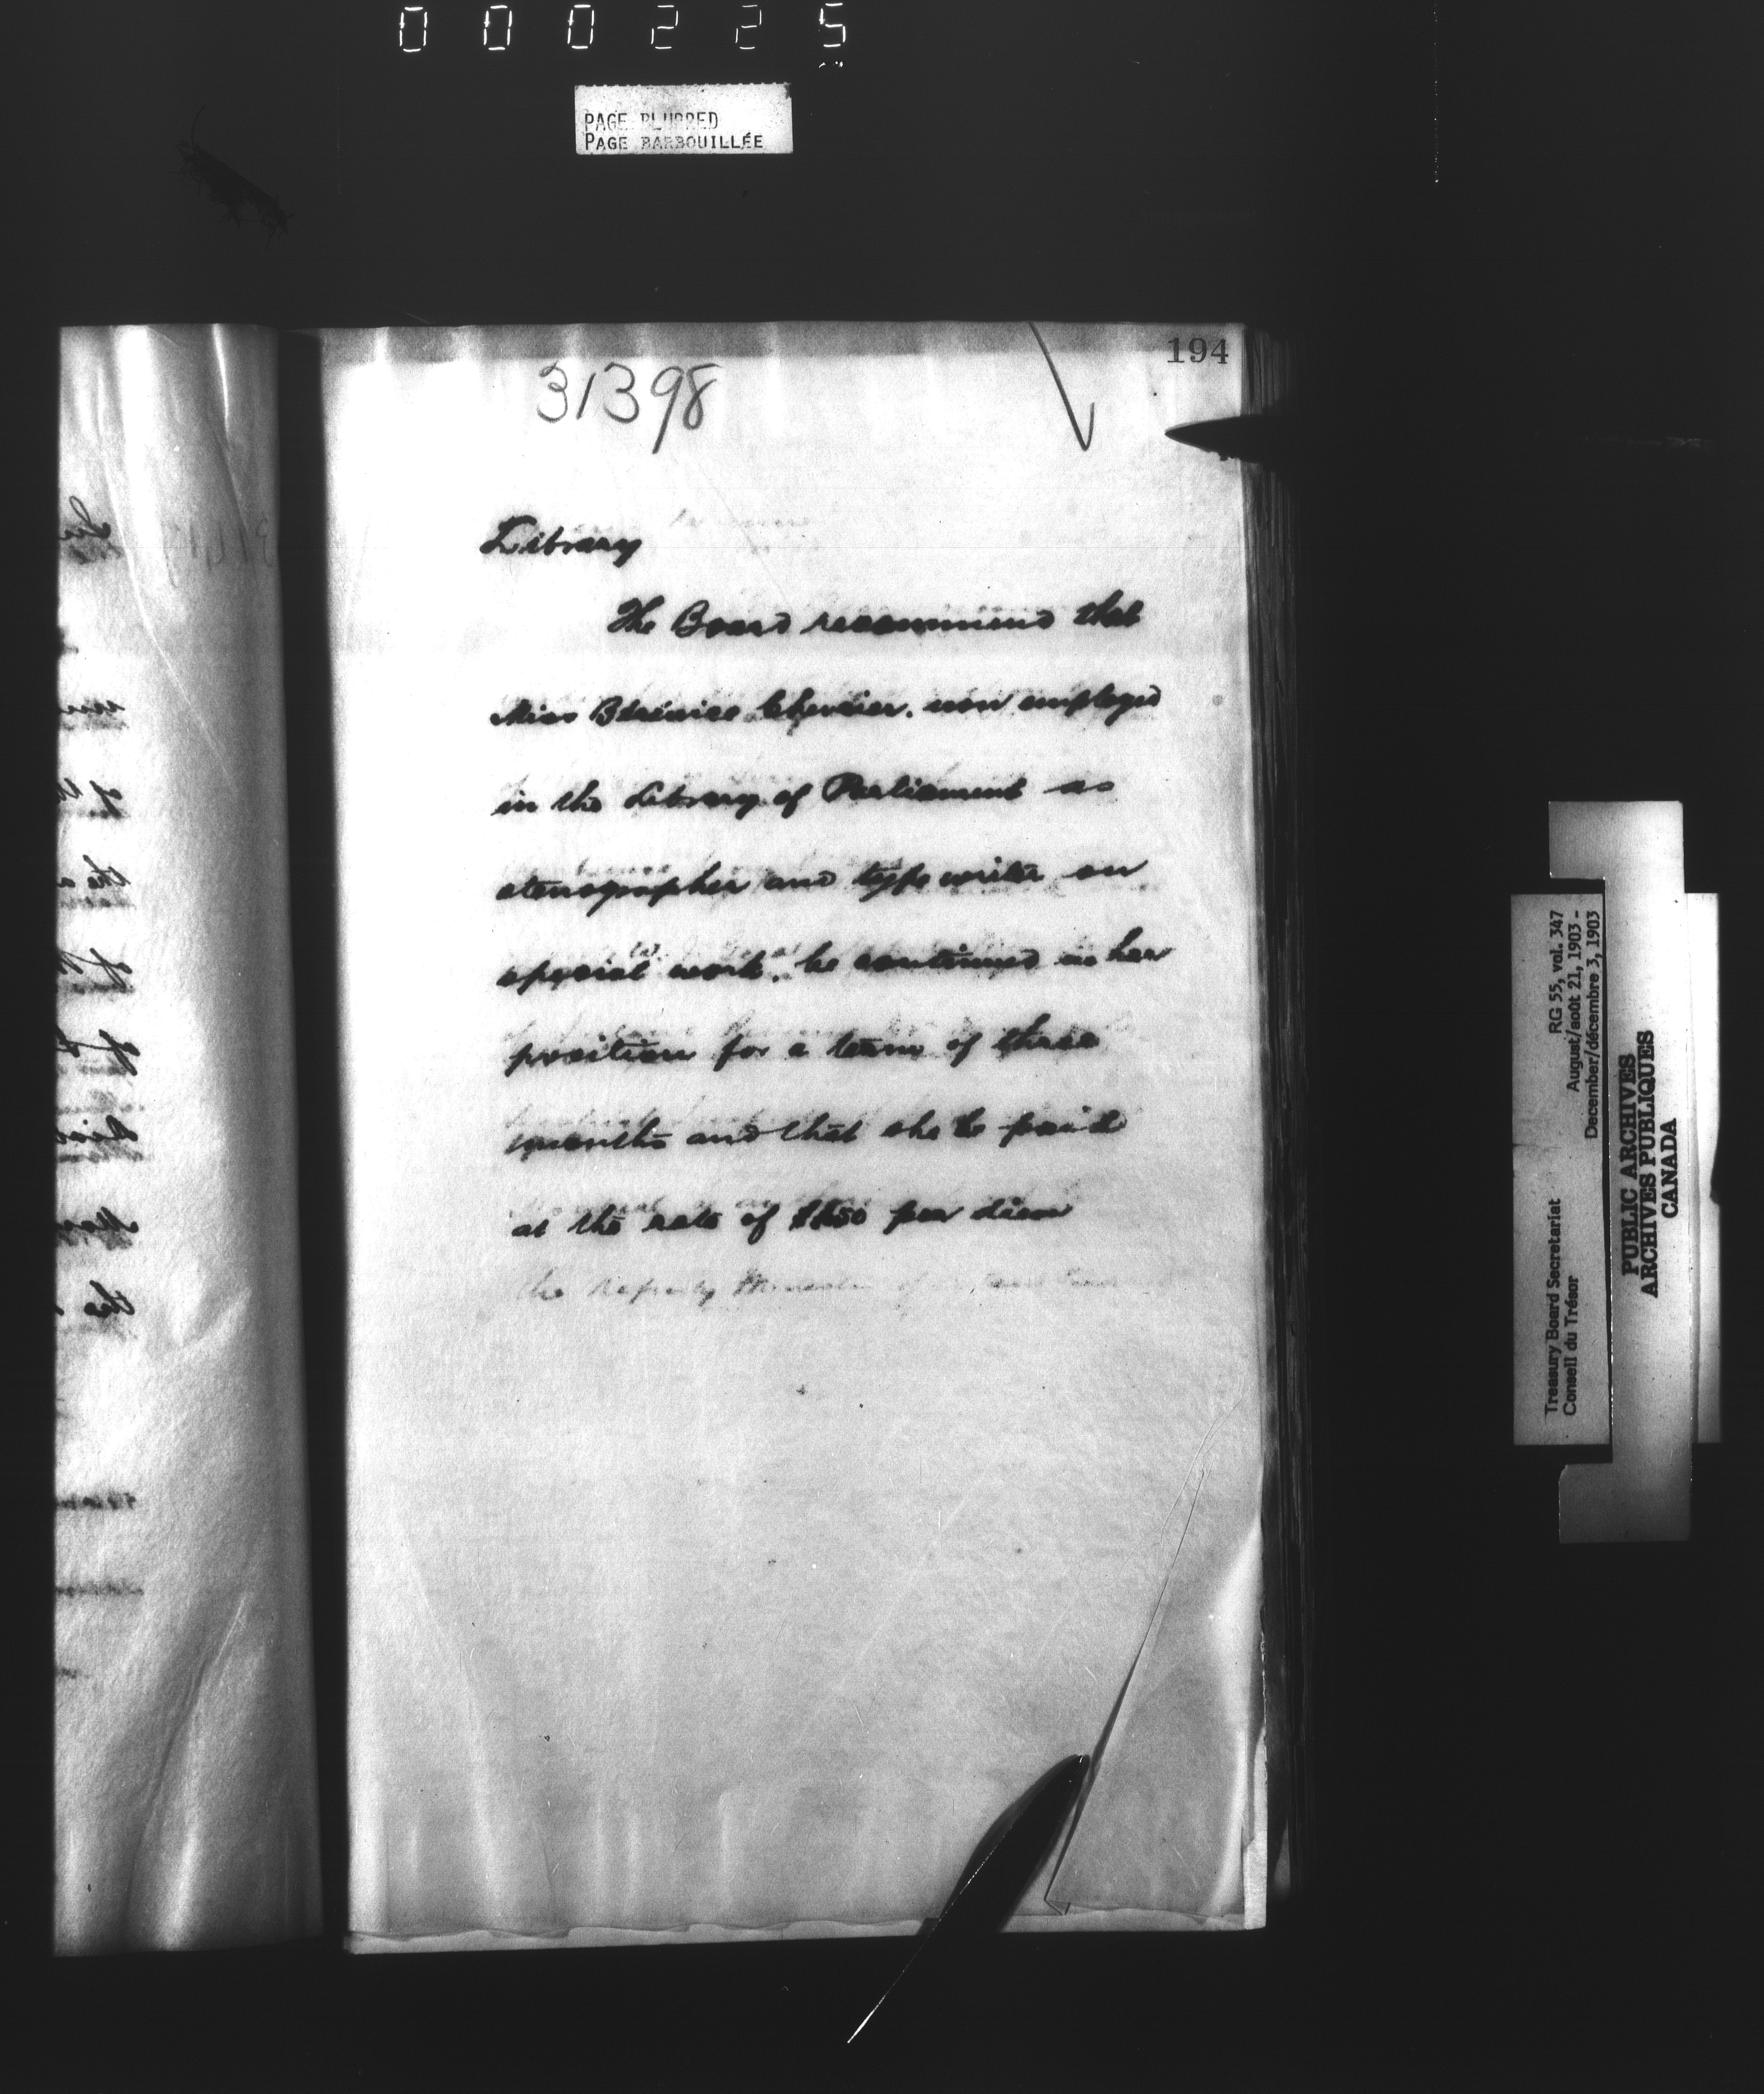 000225
PAGE BLURRED
PAGE BARBOUILLÉE
194
31398
Library
The Board recommend that
Miss Bérénice Chevrier, now employed
in the Library of Parliament as
stenographer and type writer on
special work, be continued in her
position for a term of three
months and that she be paid
at the rate of $1.50 per diem
the Deputy Minister of
Treasury Board Secretariat RG 55, vol. 347
Conseil du Trésor August/août 21, 1903 -
December/décembre 3, 1903
PUBLIC ARCHIVES
ARCHIVES PUBLIQUES
CANADA